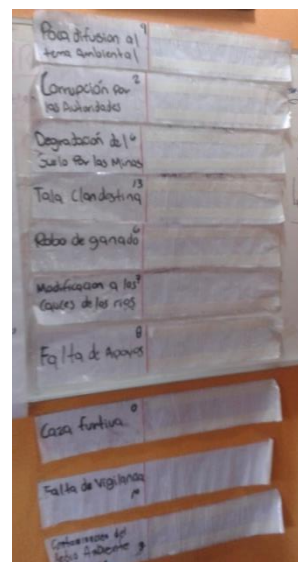 Poca difusion al 9
tema Ambiental
Corrupción por 2
las Autoridades
Degradación del 6
Suelo Por las Minas
13
Tala Clandestina
6
Robo de ganado
Modificacion a los
Cauces de los rios
8
Falta de Apoyos
0
Caza furtiva
Falta de Vigilancia
10
Contaminacion del
Medio Ambiente